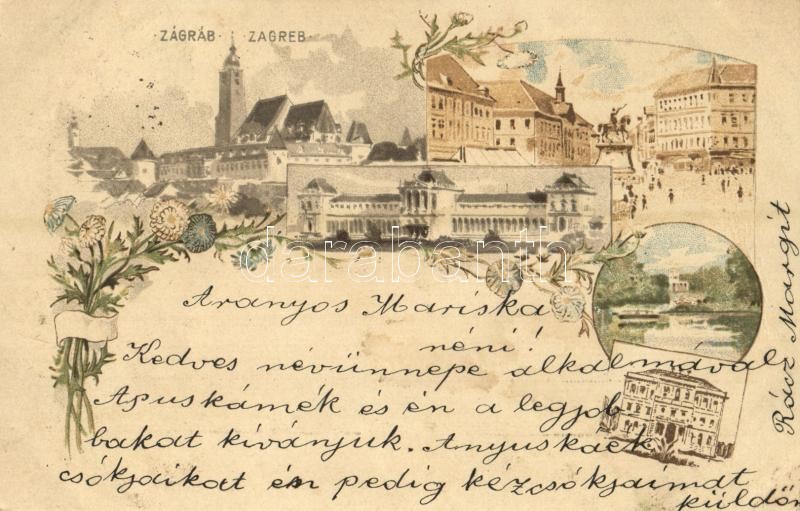 ZÁGRÁB · ZAGREB ·
darabanth.com
Aranyos Mariska
néni!
Kedves névünnepe alkalmával
Apuskámék és én a legjob
bakat kívánjuk. Anyuskáék
csókjaikat én pedig kézcsókjaimat
küldöm
Rácz Margit